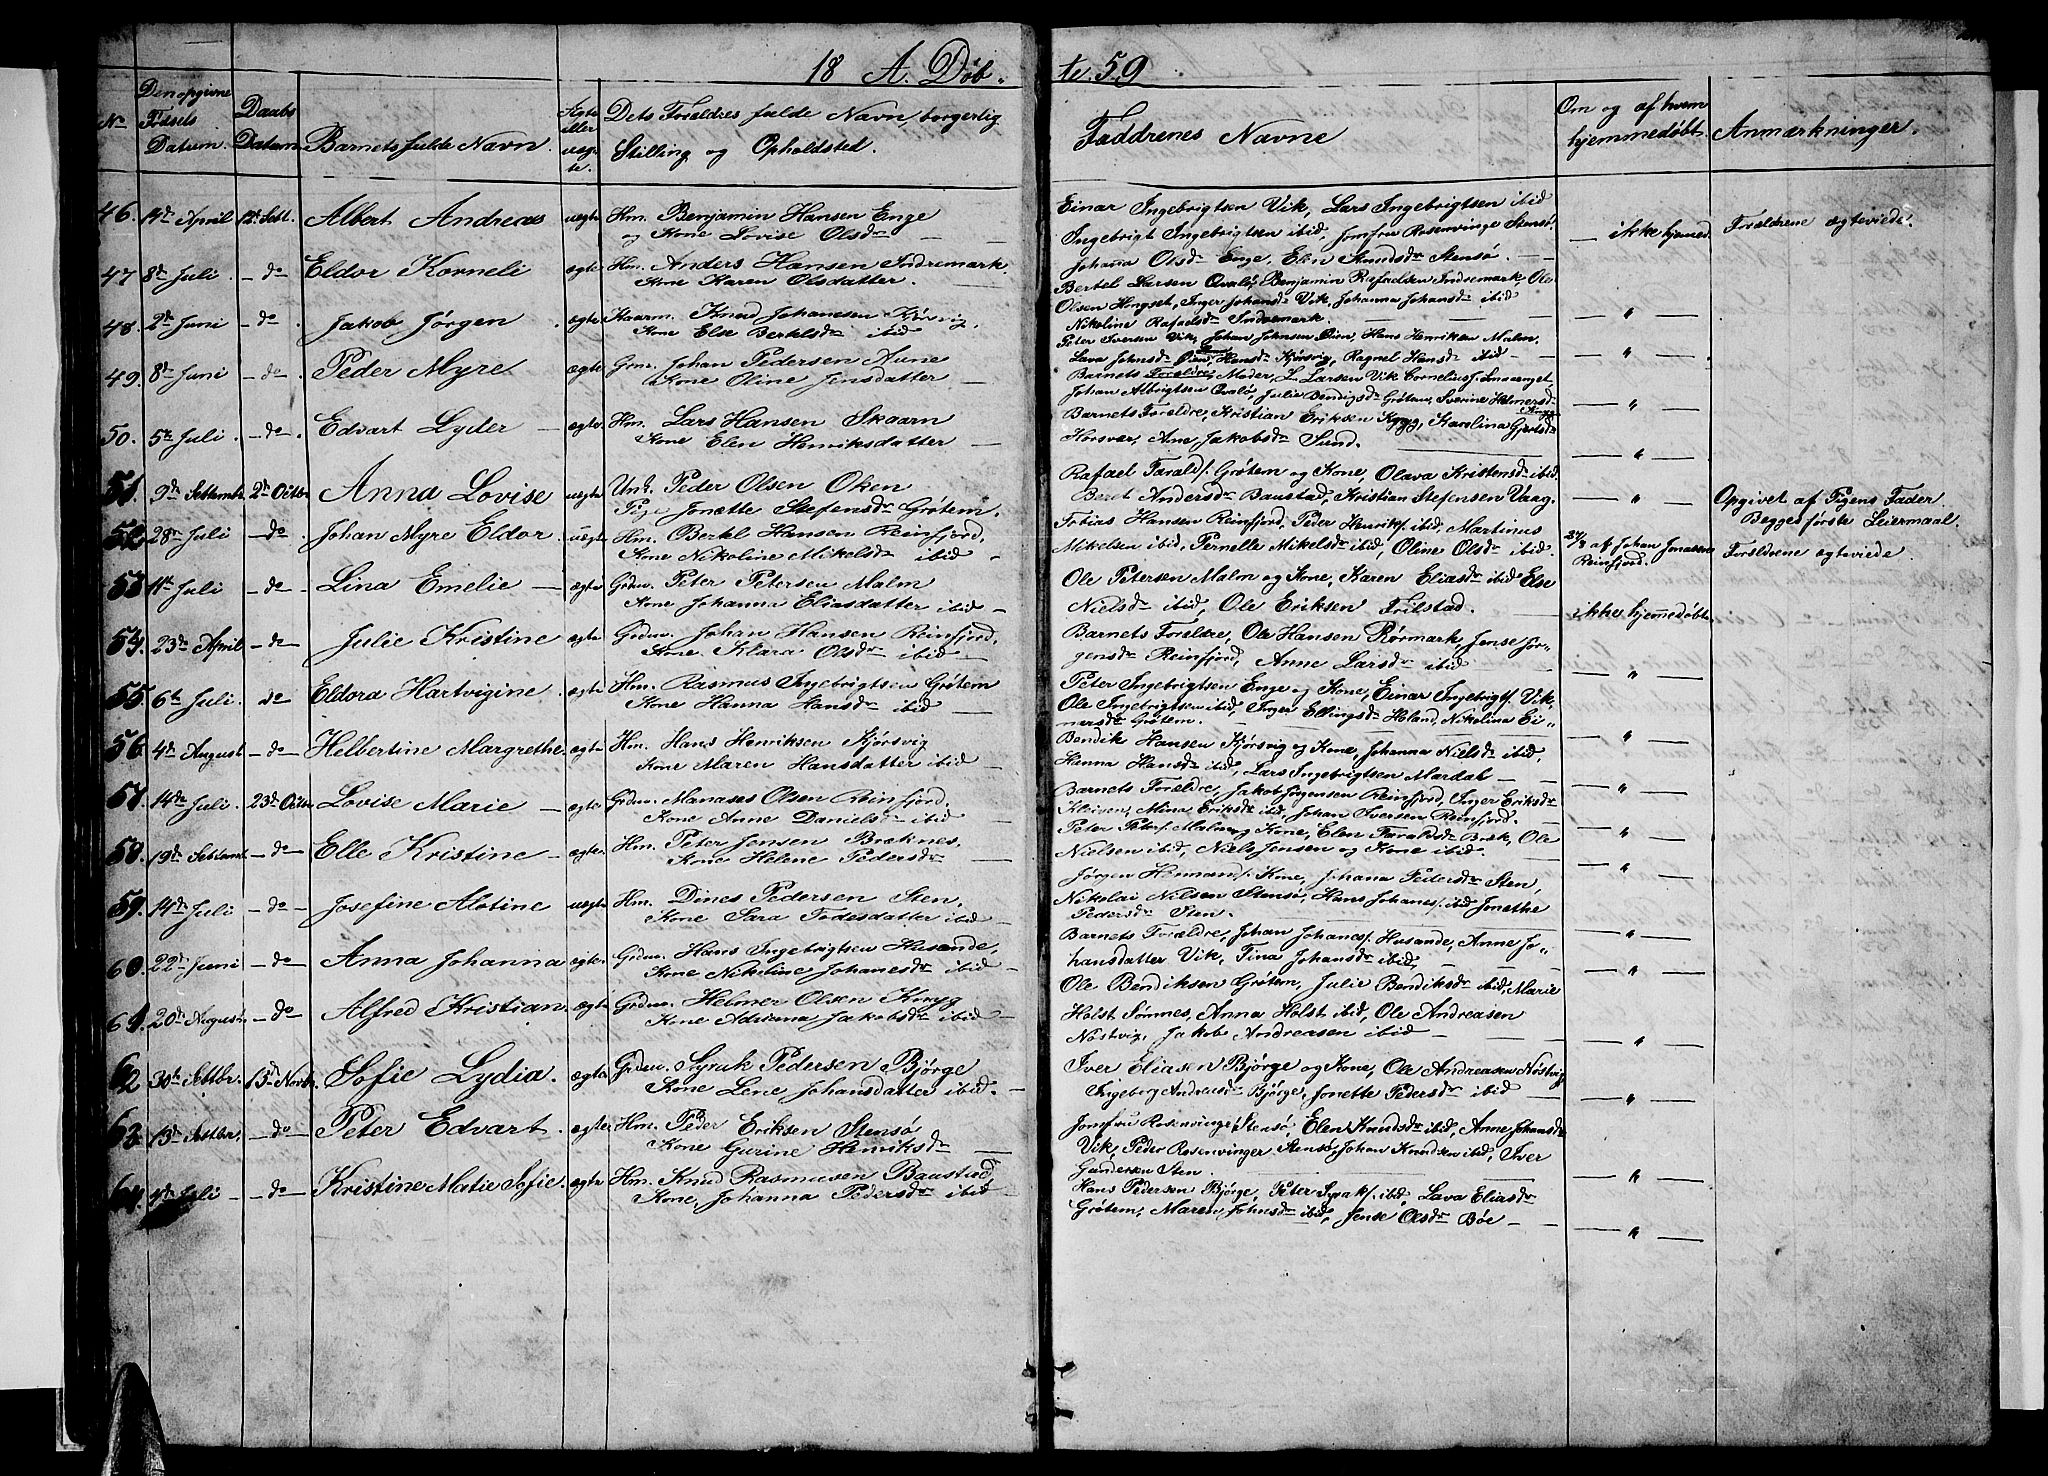 18 A. Døb-
te 59
No
Den opgivne Fødsels Datum.
Daabs Datum
Barnets fulde Navn.
Ægte eller uægte.
Dets Forældres fulde Navn, borgerlig Stilling og Opholdsted.
Faddrenes Navne
Om og af hvem hjemmedøbt.
Anmærkninger.
46. April 12t Sept. Albert Andreas uegte Hm. Benjamin Hansen Enge
og Kone Lovise Olsdr
Einar Ingebrigtsen Vik, Lars Ingebrigtsen ibid
Ingebrigt Ingebrigtsen ibid, Jomfru Rosenvinge Stensø,
Johanna Olsdr Enge, Elen Knudsdr Stensø.
ikke hjemed. Forældrene ægteviede.
47 8de Juli - do Eldor Korneli ægte Hm. Anders Hansen Indremark
Kone Karen Olsdatter.
Bertel Larsen Qvalø, Benjamin Rafaelsen Indremark, Ole
Olsen Hongset, Inger Johansdr Vik, Johanna Johansdr ibid
Nikoline Rafaelsdr Indremark
"
48. 2de Juni - do Jakob Jørgen ægte Kaarm. Knud Johansen Kjørsvig,
Kone Else Bertelsdr ibid
Peter Iversen Vik, Johan Johnsen Øien, Hans Henriksen Malm,
Lava Johnsdr Øien, Hansdr Kjørsvig, Ragnel Hansdr ibid
"
49. 8de Juni - do Peder Myre ægte Grm. Johan Pedersen Aune
Kone Oline Jensdatter
Barnets Forældre, Moder, L. Larsen Vik
Johan Albrigtsen Qvalø, Julie Bendigsdr Grøtem, Sverine Helmersdr
Knyg
"
50. 5te Juli. - do Edvart Lyder ægte Hm. Lars Hansen Skaarn
Kone Elen Henriksdatter
Barnets Forældre, Kristian Eriksen Knyg, Karolina Gjertsdr
Horsvær, Ane Jakobsdr Sund.
"
51. 9de Septembr 2de Octbr Anna Lovise uegte Unk. Peder Olsen Oken
Pige Jonette Stefensdr Grøtem.
Rafael Tarald. Grøtem og Kone, Olava Kristensdr ibid
Beret Andersdr Baustad, Kristian Stefensen Vaag.
" Opgivet af Pigens Fader
Begges første Leiermaal.
52 28de Juli - do Johan Myre Eldor. uegte Hm. Bertel Hansen Reinfjord,
Kone Nikoline Mikelsdr ibid
Tobias Hansen Reinfjord, Peder Henriks. ibid, Martinus
Mikelsen ibid, Pernelle Mikelsdr ibid, Oline Olsdr ibid.
af Johan Jonassen
Reinfjord. Forældrene ægteviede.
53 11te Juli - do Lina Emelie ægte Grdm. Peter Petersen Malm
Kone Johanna Eliasdatter ibid
Ole Petersen Malm og Kone, Karen Eliasdr ibid Else
Nielsdr ibid, Ole Eriksen Trilstad.
ikke hjemmedøbt.
54. 23de April - do Julie Kristine ægte Grdm. Johan Hansen Reinfjord,
Kone Klara Olsdr ibid
Barnets Forældre, Ole Hansen Rørmark, Jense Jør-
gensdr Reinfjord, Anne Larsdr ibid
"
55. 6te Juli. do Eldora Hartvigine. ægte Hm. Rasmus Ingebrigtsen Grøtem
Kone Hanna Hansdr ibid
Peter Ingebrigtsen Enge og Kone, Einar Ingebrigts. Vik,
Ole Ingebrigtsen ibid, Inger Ellingsdr Høland, Nikolina Ei-
nersdr Grøtem.
"
56. 4de August - do Helbertine Margrethe. ægte Hm. Hans Henriksen Kjørsvig
Kone Maren Hansdatter ibid
Bendik Hansen Kjørsvig og Kone, Johanna Nielsdr ibid,
Hanna Hansdr ibid, Lars Ingebrigtsen Mardal
"
57. 14de Juli. 23de Octbr Lovise Marie ægte Grdm. Manases Olsen Reinfjord,
Kone Anne Danielsdr ibid
Barnets Forældre, Jakob Jørgensen Reinfjord, Inger Eriksdr
Kleiven, Mina Eriksdr ibid, Johan Iversen Reinfjord.
"
58. 19de Septemb. - do Elle Kristine ægte. Hm. Peter Jensen Bræknes.
Kone Helene Pedersdr
Peter Peters. Malm og Kone, Elen Taraldsdr Bræk, Ole
Nielsen ibid, Niels Jensen og Kone ibid.
"
59. 14de Juli - do Josefine Alotine uegte Hm. Dines Pedersen Sten,
Kone Sara Todesdatter ibid
Jørgen Hermands. Kone, Johana Pedersdr Sten,
Nikolai Nilsen Stensø, Hans Johanes. ibid Jonethe
Pedersdr Sten.
"
60. 22de Juni - do Anna Johanna ægte. Grdm. Hans Ingebrigtsen Husande,
Kone Nikoline Johanesdr ibid
Barnets Forældre, Johan Johanes. Husande, Anne Jo-
hansdatter Vik, Tina Johansdr ibid,
"
61. 20de August - do Alfred Kristian. ægte Grdm. Helmer Olsen Knyg
Kone Adriana Jakobsdr ibid
Ole Bendiksen Grøtem, Julie Bendiksdr ibid, Marie
Holst Sømnes, Anna Holst ibid, Ole Andreasen
Nøstvig, Jakob Andreasen ibid
"
62 30te Septbr. 13de Novbr. Sofie Lydia. ægte Grdm. Syrak Pedersen Bjørge
Kone Lene Johansdatter ibid.
Iver Eliasen Bjørge og Kone, Ole Andreasen Nøstvig
Ingeborg Andreasdr Bjørge, Jonette Pedersdr ibid
"
63. 13de Septbr. - do Peter Edvart. ægte. Hm. Peder Eriksen Stensø
Kone Gurine Henriksdr
Jomfru Rosenvinge Stensø, Elen Knudsdr ibid, Anne Johansdr
Vik, Peder Rosenvinger Stensø, Johan Knudsen ibid, Iver
Gundersen Sten.
"
64. Juli - do Kristine Matie Sofie. ægte Hm. Knud Rasmusen Baustad,
Kone, Johanna Pedersdr ibid
Hans Pedersen Bjørge, Peter Syraks. ibid, Lava Eliasdr
Grøtem, Maren Johnsdr ibid, Jense Olsdr Bøe
"